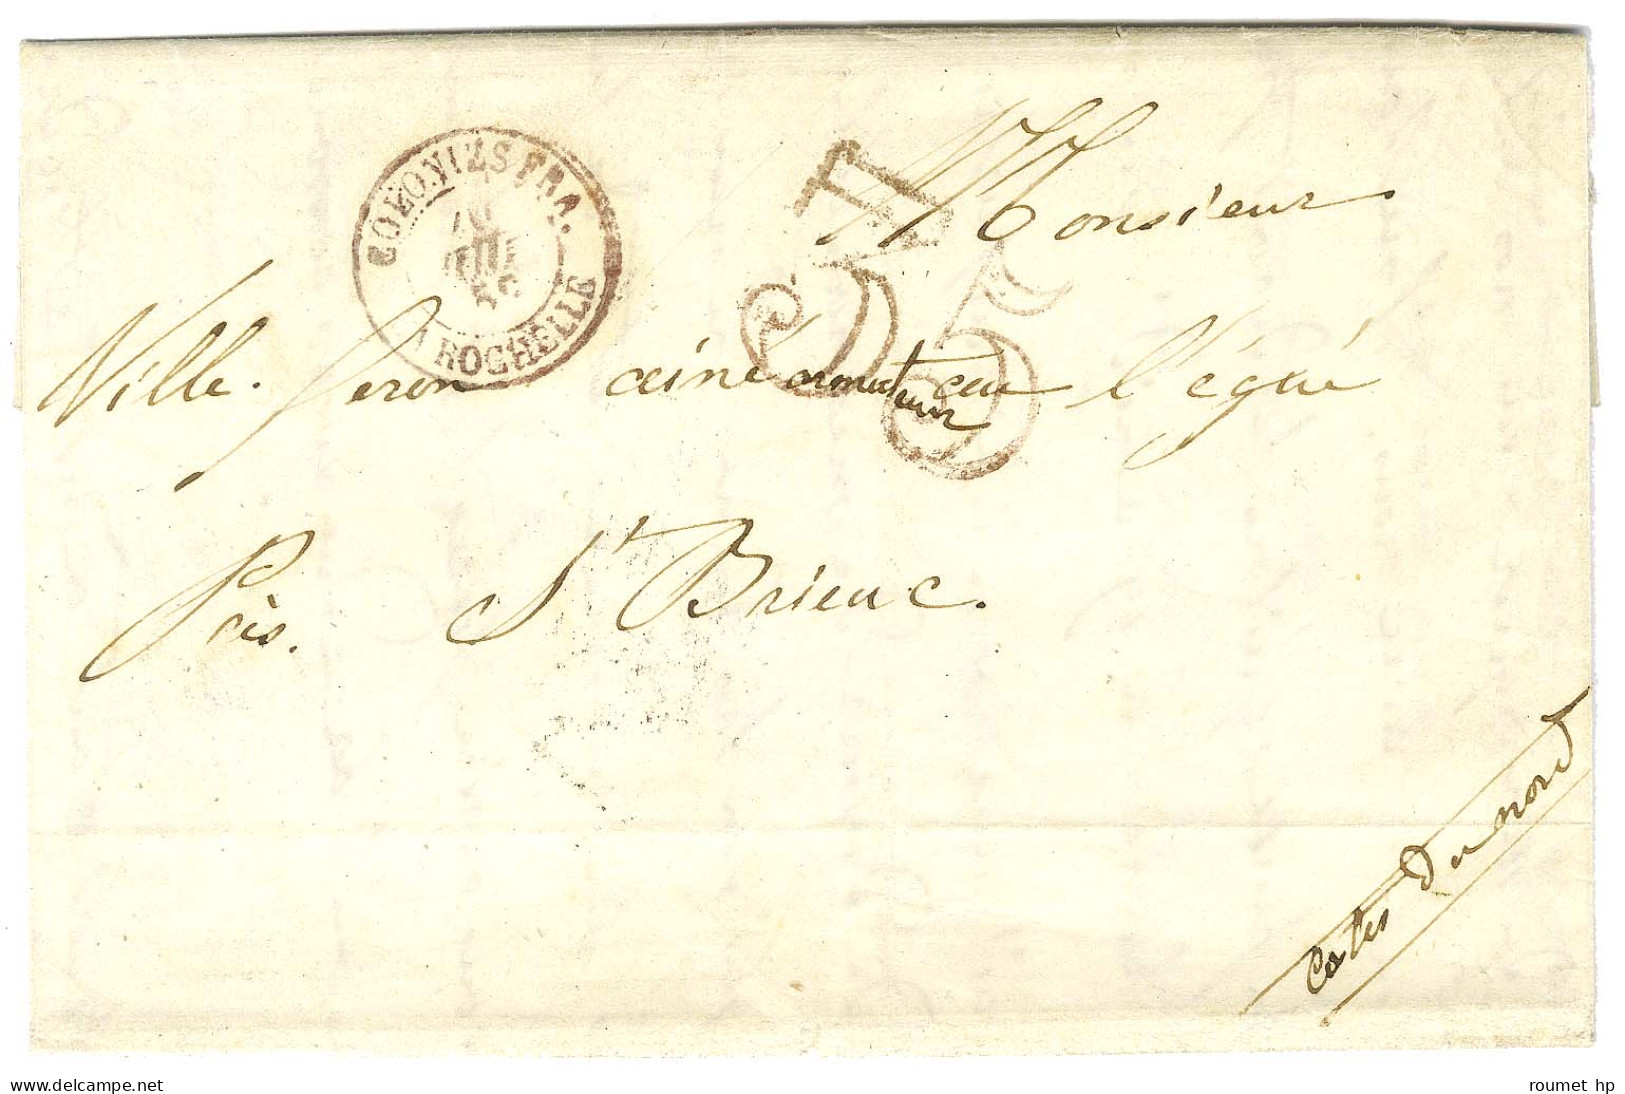 COLONIES FRA.
JUIL
LA ROCHELLE
35
Monsieur
Ville. feron ainé armateur au l'égué
Près. St Brieuc.
Cotes du nord
delcampe.net
roumet hp